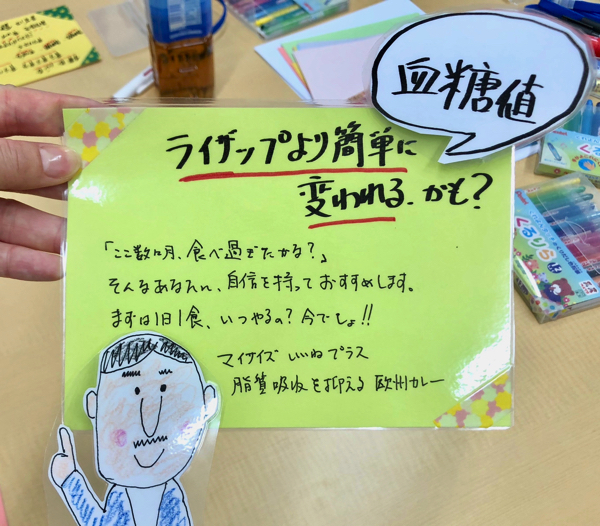 血糖値
ライザップより簡単に
変われる、かも?
「ここ数ヶ月、食べ過ぎたかな?」
そんなあなたに、自信を持っておすすめします。
まずは1日1食、いつやるの?今でしょ!!
マイサイズ いいねプラス
脂質吸収を抑える 欧州カレー
くるりら